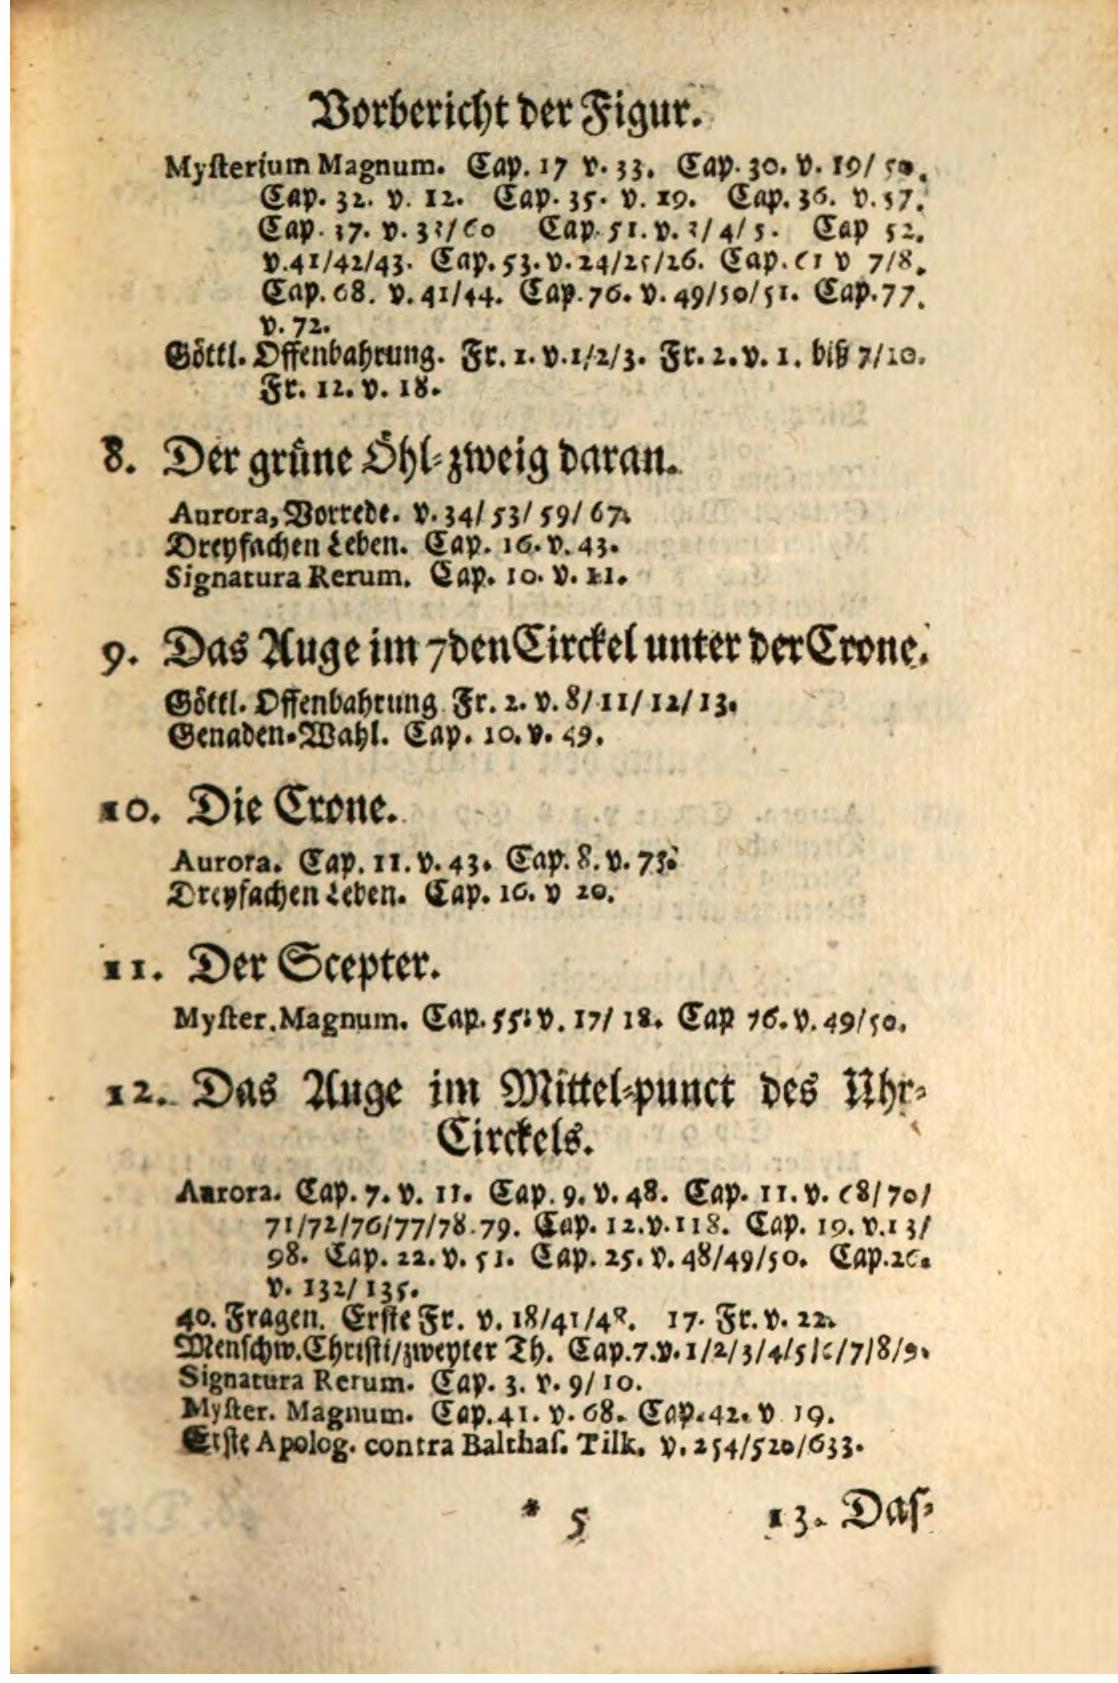 Vorbericht der Figur.
Mysterium Magnum. Cap. 17 v. 33. Cap. 30. v. 19/ 50.
Cap. 32. v. 12. Cap. 35. v. 19. Cap. 36. v. 57.
Cap. 37. v. 33/60 Cap. 51. v. 3/4/5. Cap 52.
v. 41/42/43. Cap. 53. v. 24/25/26. Cap. 61 v 7/8.
Cap. 68. v. 41/44. Cap. 76. v. 49/50/51. Cap. 77.
v. 72.
Göttl. Offenbahrung. Fr. 1. v. 1/2/3. Fr. 2. v. 1. biß 7/10.
Fr. 12. v. 18.
8. Der grüne Öhl-zweig daran.
Aurora, Vorrede. v. 34/ 53/ 59/ 67.
Dreyfachen Leben. Cap. 16. v. 43.
Signatura Rerum. Cap. 10. v. 11.
9. Das Auge im 7den Circkel unter der Crone.
Göttl. Offenbahrung Fr. 2. v. 8/ 11/ 12/ 13.
Genaden-Wahl. Cap. 10. v. 49.
10. Die Crone.
Aurora. Cap. 11. v. 43. Cap. 8. v. 73.
Dreyfachen Leben. Cap. 16. v 20.
11. Der Scepter.
Myster. Magnum. Cap. 55. v. 17/ 18. Cap 76. v. 49/50.
12. Das Auge im Mittel-punct des Uhr-
Circkels.
Aurora. Cap. 7. v. 11. Cap. 9. v. 48. Cap. 11. v. 68/ 70/
71/72/76/77/78.79. Cap. 12. v. 118. Cap. 19. v. 13/
98. Cap. 22. v. 51. Cap. 25. v. 48/49/50. Cap. 26.
v. 132/ 135.
40. Fragen. Erste Fr. v. 18/41/48. 17. Fr. v. 22.
Menschw. Christi/zweyter Th. Cap. 7. v. 1/2/3/4/5/6/7/8/9.
Signatura Rerum. Cap. 3. v. 9/ 10.
Myster. Magnum. Cap. 41. v. 68. Cap. 42. v 19.
Erste Apolog. contra Balthas. Tilk. v. 254/520/633.
* 5 13. Das-